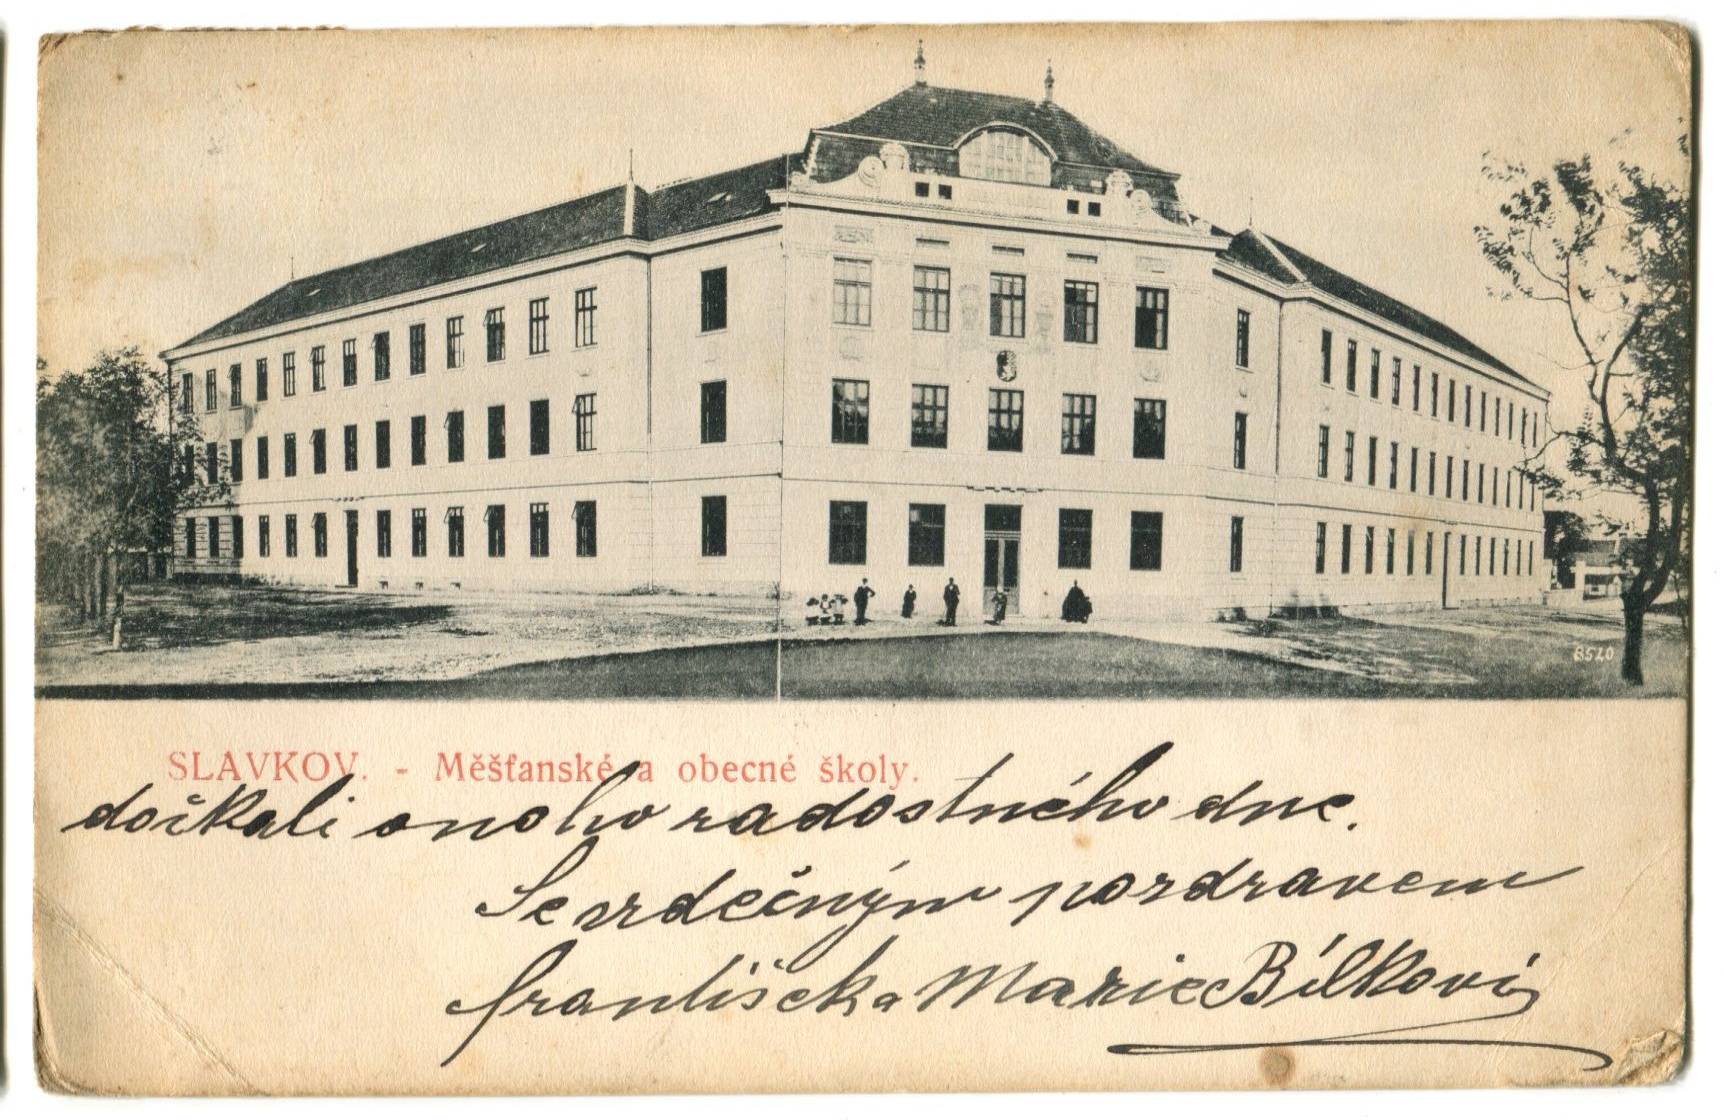 8520
SLAVKOV. - Měšťanské a obecné školy.
dočkali onoho radostného dne.
Se srdečným pozdravem
František a Marie Bílkovi